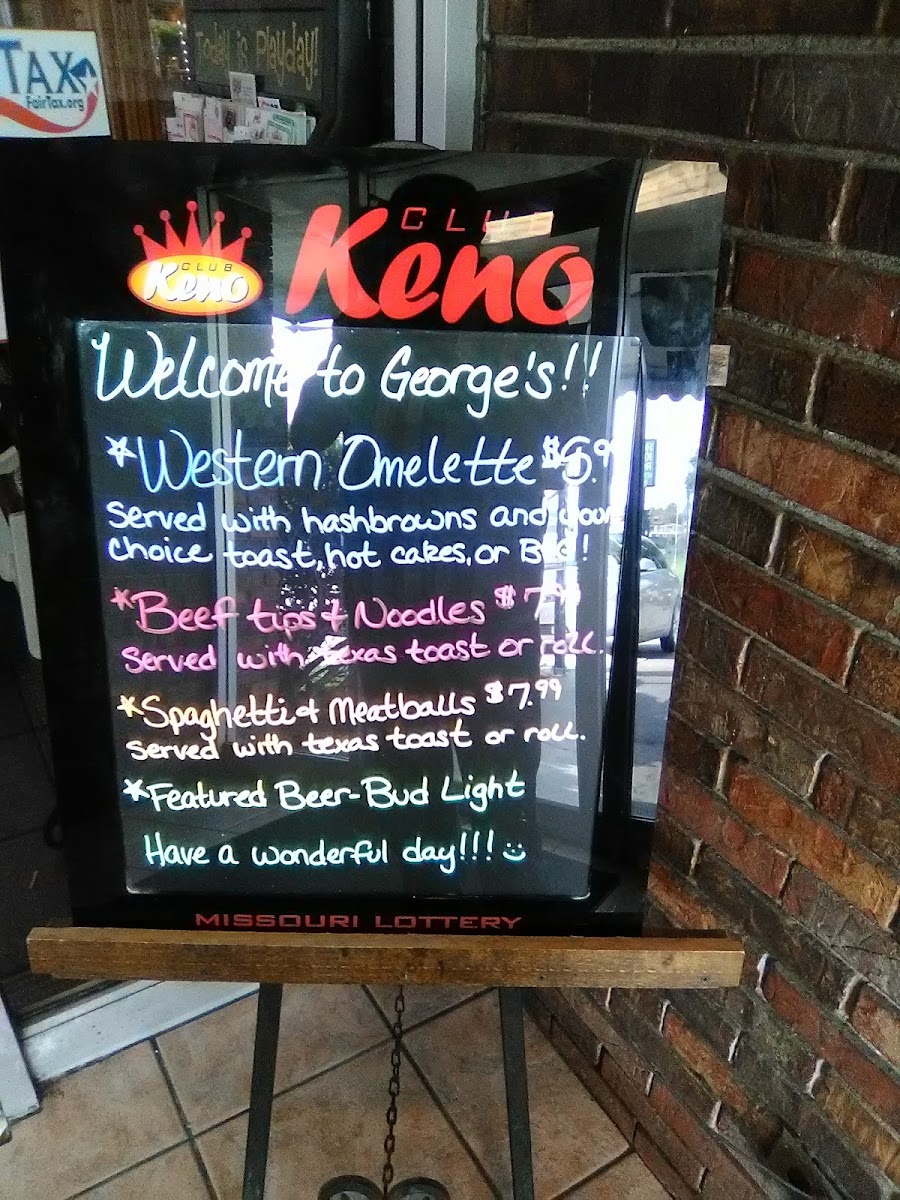 TAX
FairTax.org
Today is Playday!
CLUB
Keno
CLUB
Keno
Welcome to George's!!
*Western Omelette $6.9
Served with hashbrowns and your
choice toast, hot cakes, or B&G!
*Beef tips & Noodles $7.99
Served with texas toast or roll.
*Spaghetti & Meatballs $7.99
Served with texas toast or roll.
*Featured Beer-Bud Light
Have a wonderful day!!! ☺
MISSOURI LOTTERY